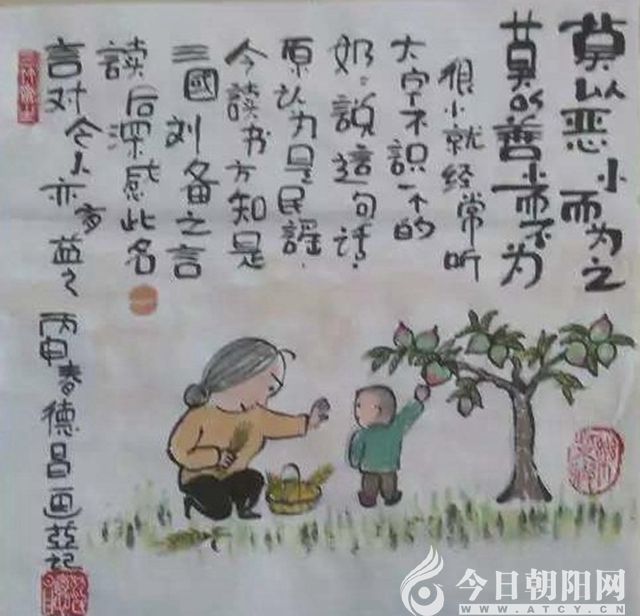 莫以恶小而为之
莫以善小而不为
很小就经常听
大字不识一个的
奶:説這一句话:
原认为是民謡.
今読书方知是
三國刘备之言
读后深感此名
言对今人亦有益之
丙申春德昌画并记
今日朝阳网
WWW.ATCY.CN